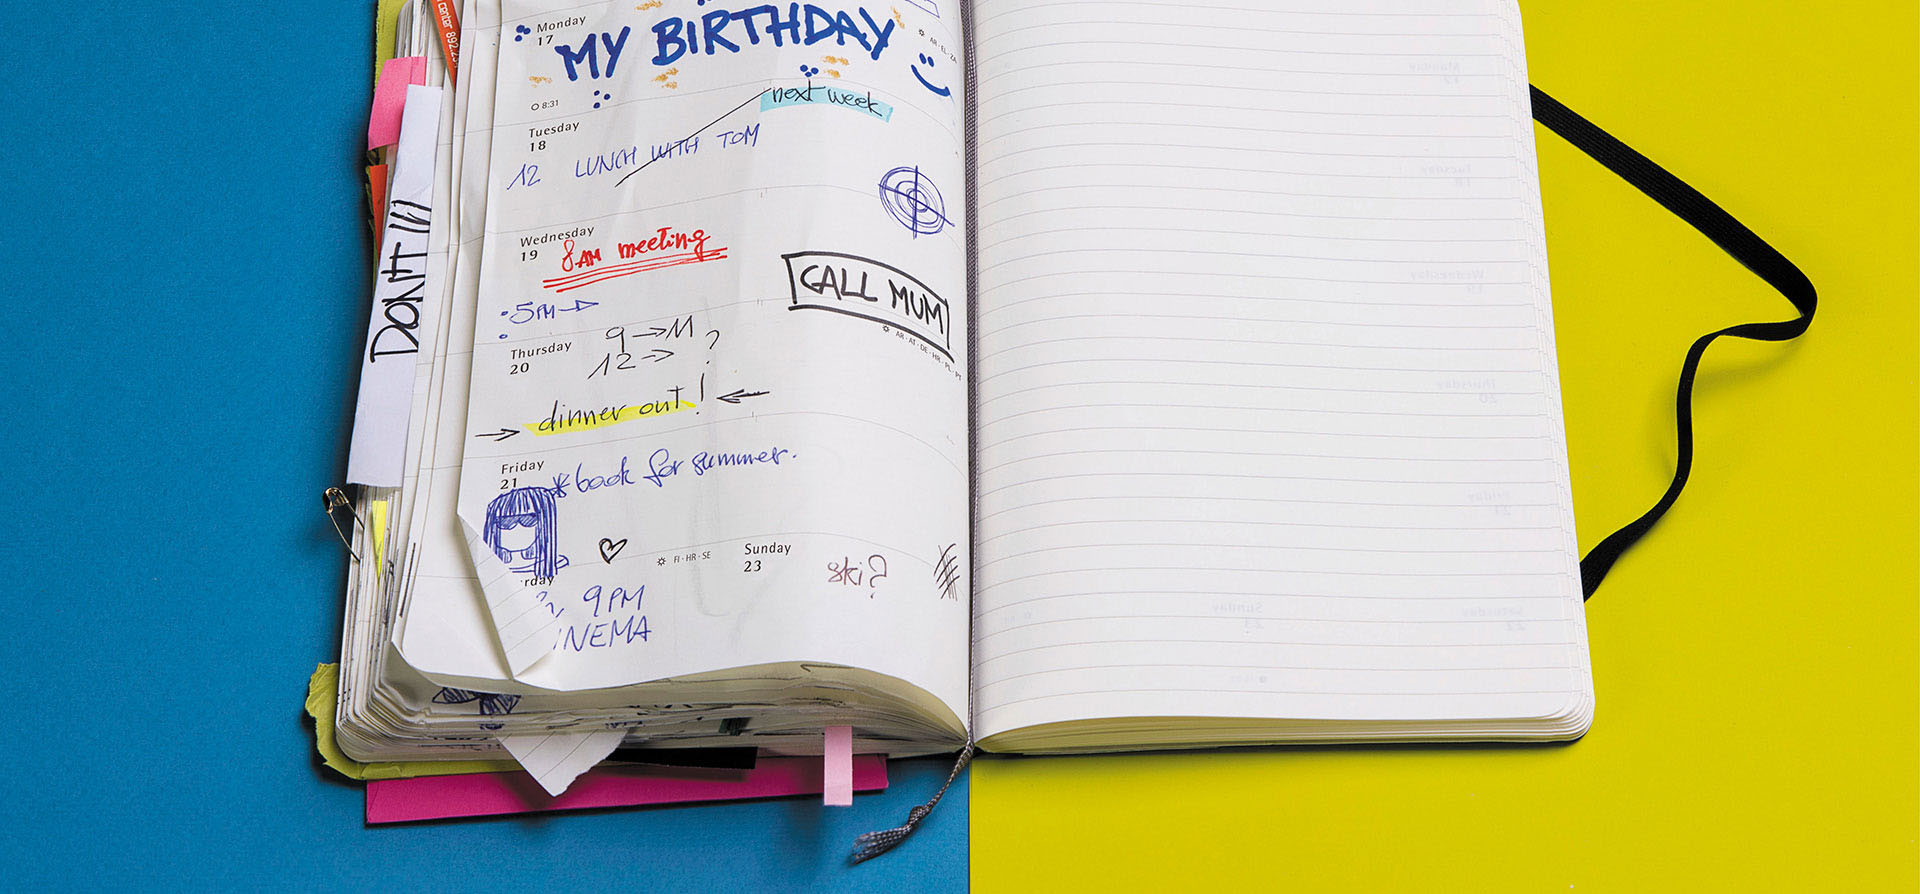 center 892.2
Monday
17
MY BIRTHDAY
AR·EL·ZA
8:31
next week
Tuesday
18
12 LUNCH WITH TOM
Wednesday
19
8AM meeting
DON'T!!!
CALL MUM
5PM→
AR·AT·DE·HR·PL·PT
Thursday
20
9→11
12→ ?
→ dinner out! ←
Friday
21
*book for summer.
FI·HR·SE
Sunday
23
ski?
rday
9PM
INEMA